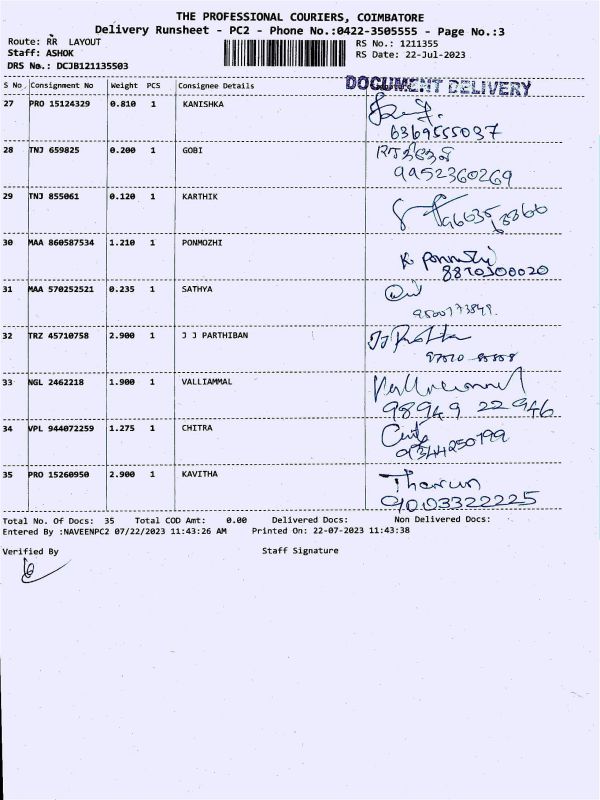 THE PROFESSIONAL COURIERS, COIMBATORE
Delivery Runsheet - PC2 - Phone No.:0422-3505555 - Page No.:3
Route: RR LAYOUT
RS No.: 1211355
Staff: ASHOK
RS Date: 22-Jul-2023
DRS No.: DCJB121135503
DOCUMENT DELIVERY
S No Consignment No Weight PCS Consignee Details
27 PRO 15124329 0.810 1 KANISHKA
6369555037
28 TNJ 659825 0.200 1 GOBI
9952360269
29 TNJ 855061 0.120 1 KARTHIK
30 MAA 860587534 1.210 1 PONMOZHI
K Ponmozhi
31 MAA 570252521 0.235 1 SATHYA
32 TRZ 45710758 2.900 1 J J PARTHIBAN
33 NGL 2462218 1.900 1 VALLIAMMAL
98949 22 946
34 VPL 944072259 1.275 1 CHITRA
9344250199
35 PRO 15260950 2.900 1 KAVITHA
Tharun
9003322225
Total No. Of Docs: 35 Total COD Amt: 0.00 Delivered Docs: Non Delivered Docs:
Entered By :NAVEENPC2 07/22/2023 11:43:26 AM Printed On: 22-07-2023 11:43:38
Verified By Staff Signature